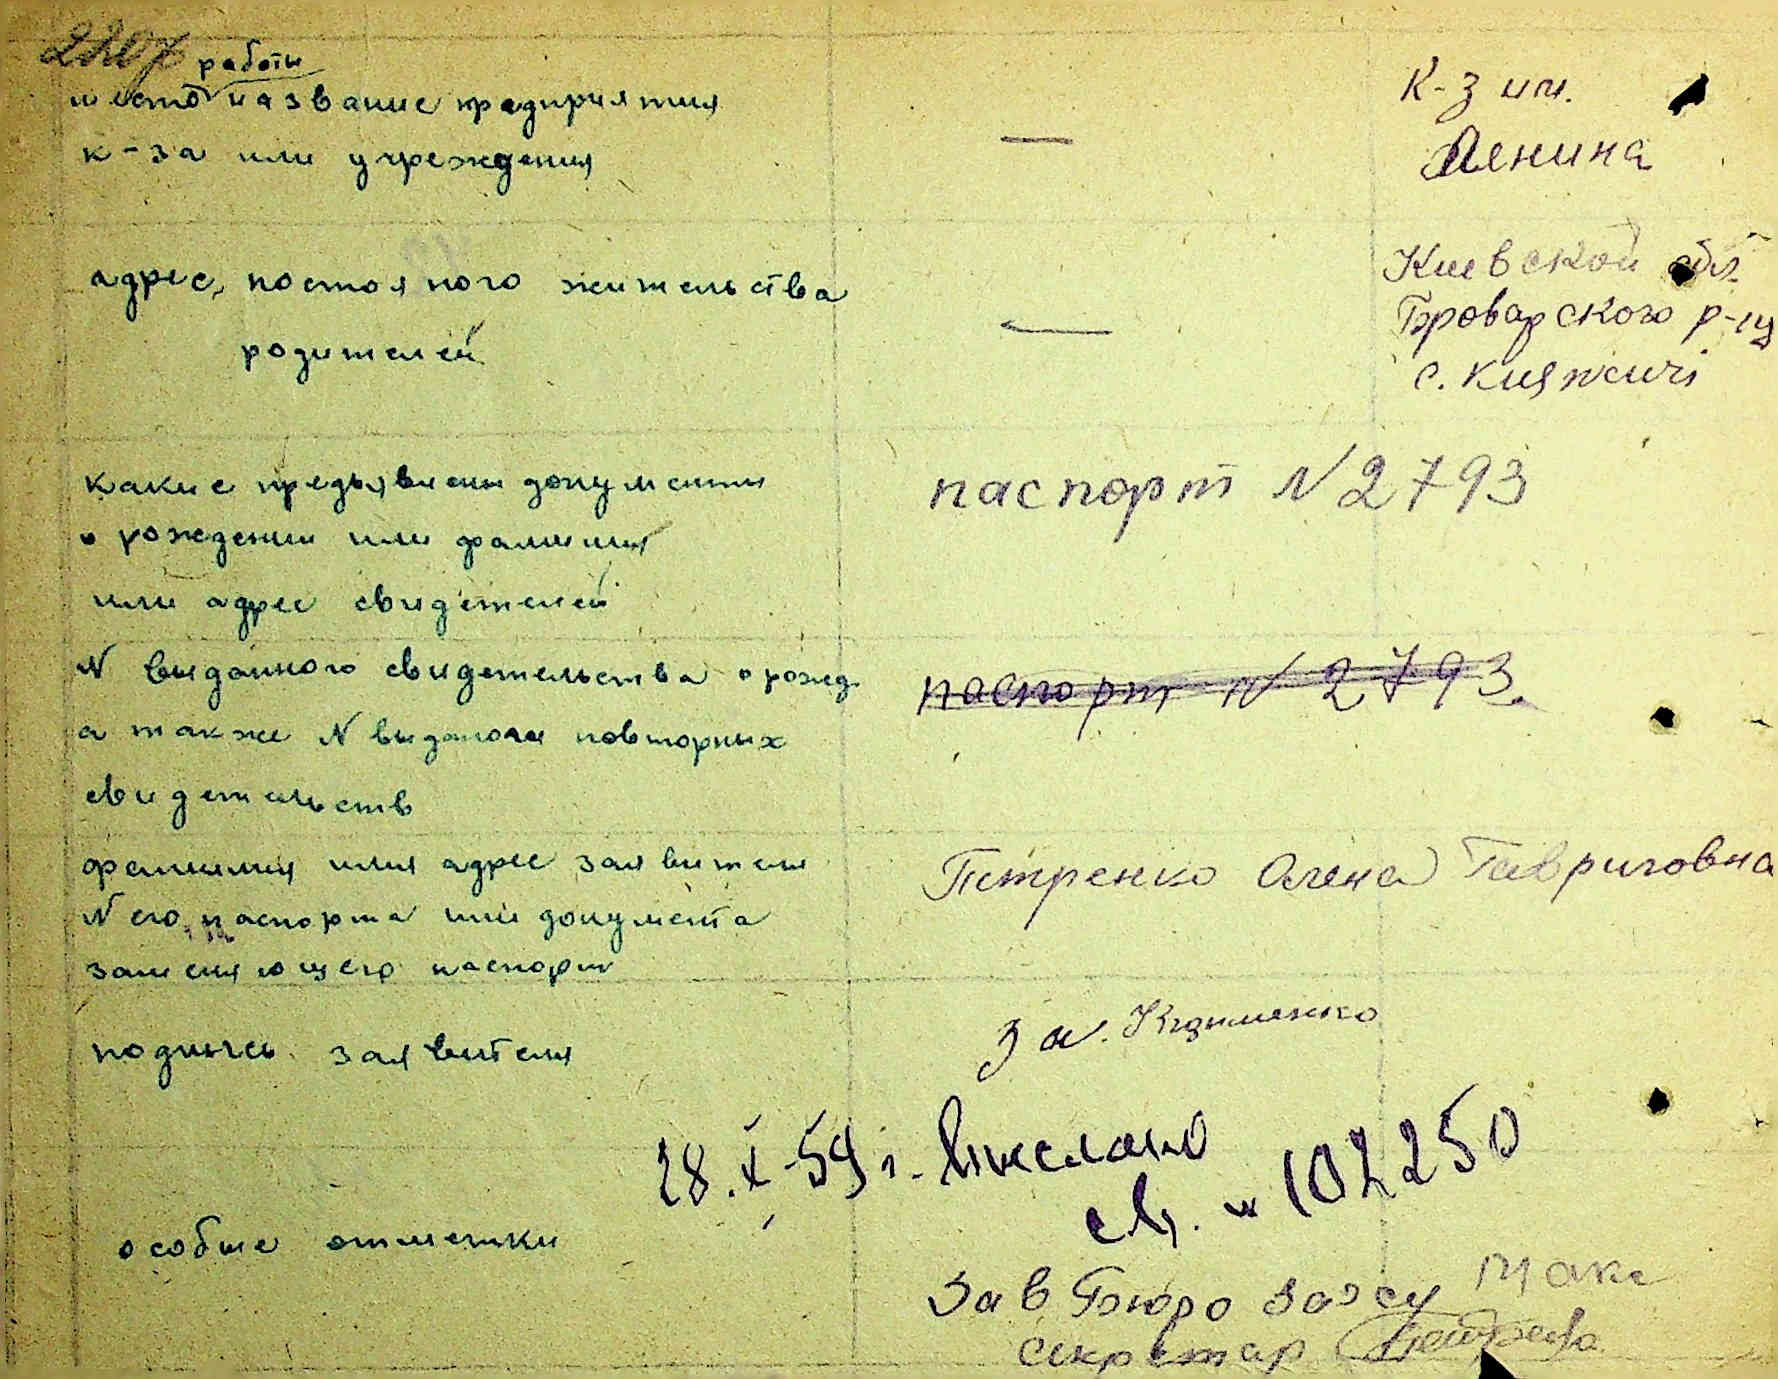 работы
место название предприятия
к-за или учреждения
—
К-з им.
Ленина
адрес, постояного жительства
родителей
—
Киевской обл.
Броварского р-на
с. Княжичі
какие предьявлены документы
о рождении или фамилия
или адрес свидетелей
паспорт N 2793
N выданного свидетельства о рожд.
а также N выданых повторных
свидетельств
паспорт N 2793.
фамилия или адрес заявителя
N его паспорта или документа
заменяющего паспорт
Петренко Олена Гавриловна
подпись заявителя
За.
28.X-59 г.
св. N 102250
особые отметки
Зав Бюро загсу
Секретар